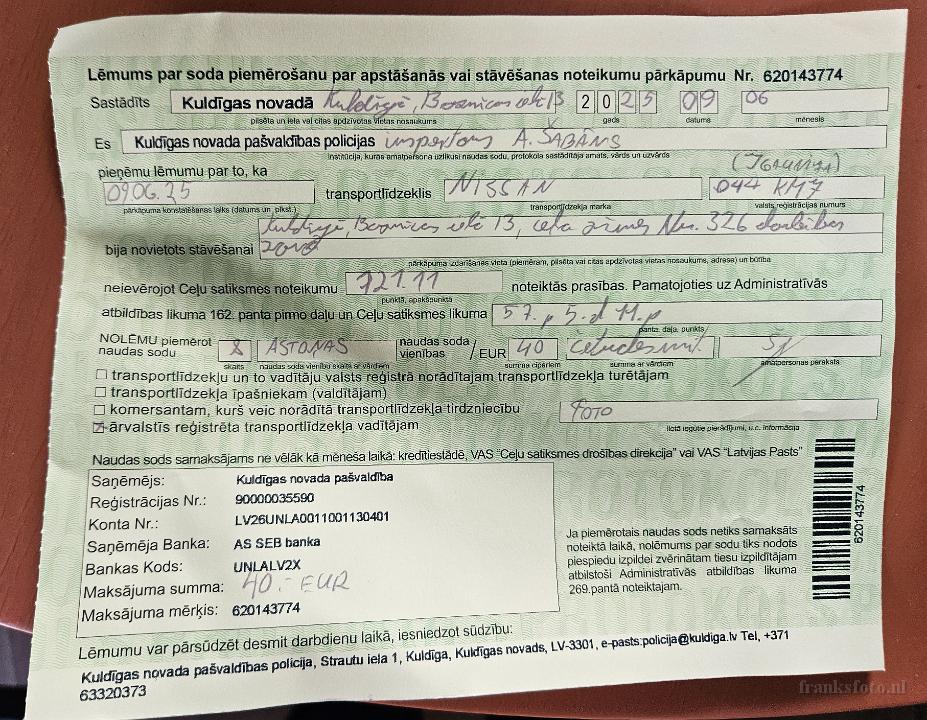 Lēmums par soda piemērošanu par apstāšanās vai stāvēšanas noteikumu pārkāpumu Nr. 620143774
Sastādīts Kuldīgas novadā Kuldīgā, Baznīcas ielā 13 2025 09 06
pilsēta un iela vai citas apdzīvotas vietas nosaukums gads datums mēnesis
Es Kuldīgas novada pašvaldības policijas inspektors A. ŠABĀNS
institūcija, kuras amatpersona uzlikusi naudas sodu, protokola sastādītāja amats, vārds un uzvārds
pieņēmu lēmumu par to, ka
09.06.25 transportlīdzeklis NISSAN 044 KMJ
pārkāpuma konstatēšanas laiks (datums un plkst.) transportlīdzekļa marka valsts reģistrācijas numurs
Kuldīgā, Baznīcas ielā 13, ceļa zīmes Nr. 326 darbības
bija novietots stāvēšanai zonā
pārkāpuma izdarīšanas vieta (piemēram, pilsēta vai citas apdzīvotas vietas nosaukums, adrese) un būtība
neievērojot Ceļu satiksmes noteikumu 721.11 noteiktās prasības. Pamatojoties uz Administratīvās
punktā, apakšpunktā
atbildības likuma 162. panta pirmo daļu un Ceļu satiksmes likuma 57. p 5. d 11. p
panta, daļa, punkts
NOLĒMU piemērot naudas sodu 8 ASTOŅAS naudas soda vienības / EUR 40 četrdesmit
skaits naudas soda vienību skaits ar vārdiem summa cipariem summa ar vārdiem amatpersonas paraksts
transportlīdzekļu un to vadītāju valsts reģistrā norādītajam transportlīdzekļa turētājam
transportlīdzekļa īpašniekam (valdītājam)
komersantam, kurš veic norādītā transportlīdzekļa tirdzniecību FOTO
ārvalstīs reģistrēta transportlīdzekļa vadītājam
lietā iegūtie pierādījumi, u.c. informācija
Naudas sods samaksājams ne vēlāk kā mēneša laikā: kredītiestādē, VAS "Ceļu satiksmes drošības direkcija" vai VAS "Latvijas Pasts"
Saņēmējs: Kuldīgas novada pašvaldība
Reģistrācijas Nr.: 90000035590
Konta Nr.: LV26UNLA0011001130401
Saņēmēja Banka: AS SEB banka
Bankas Kods: UNLALV2X
Maksājuma summa: 40.- EUR
Maksājuma mērķis: 620143774
Ja piemērotais naudas sods netiks samaksāts
noteiktā laikā, nolēmums par sodu tiks nodots
piespiedu izpildei zvērinātam tiesu izpildītājam
atbilstoši Administratīvās atbildības likuma
269.pantā noteiktajam.
620143774
Lēmumu var pārsūdzēt desmit darbdienu laikā, iesniedzot sūdzību:
Kuldīgas novada pašvaldības policija, Strautu iela 1, Kuldīga, Kuldīgas novads, LV-3301, e-pasts:policija@kuldiga.lv Tel, +371
63320373
franksfoto.nl